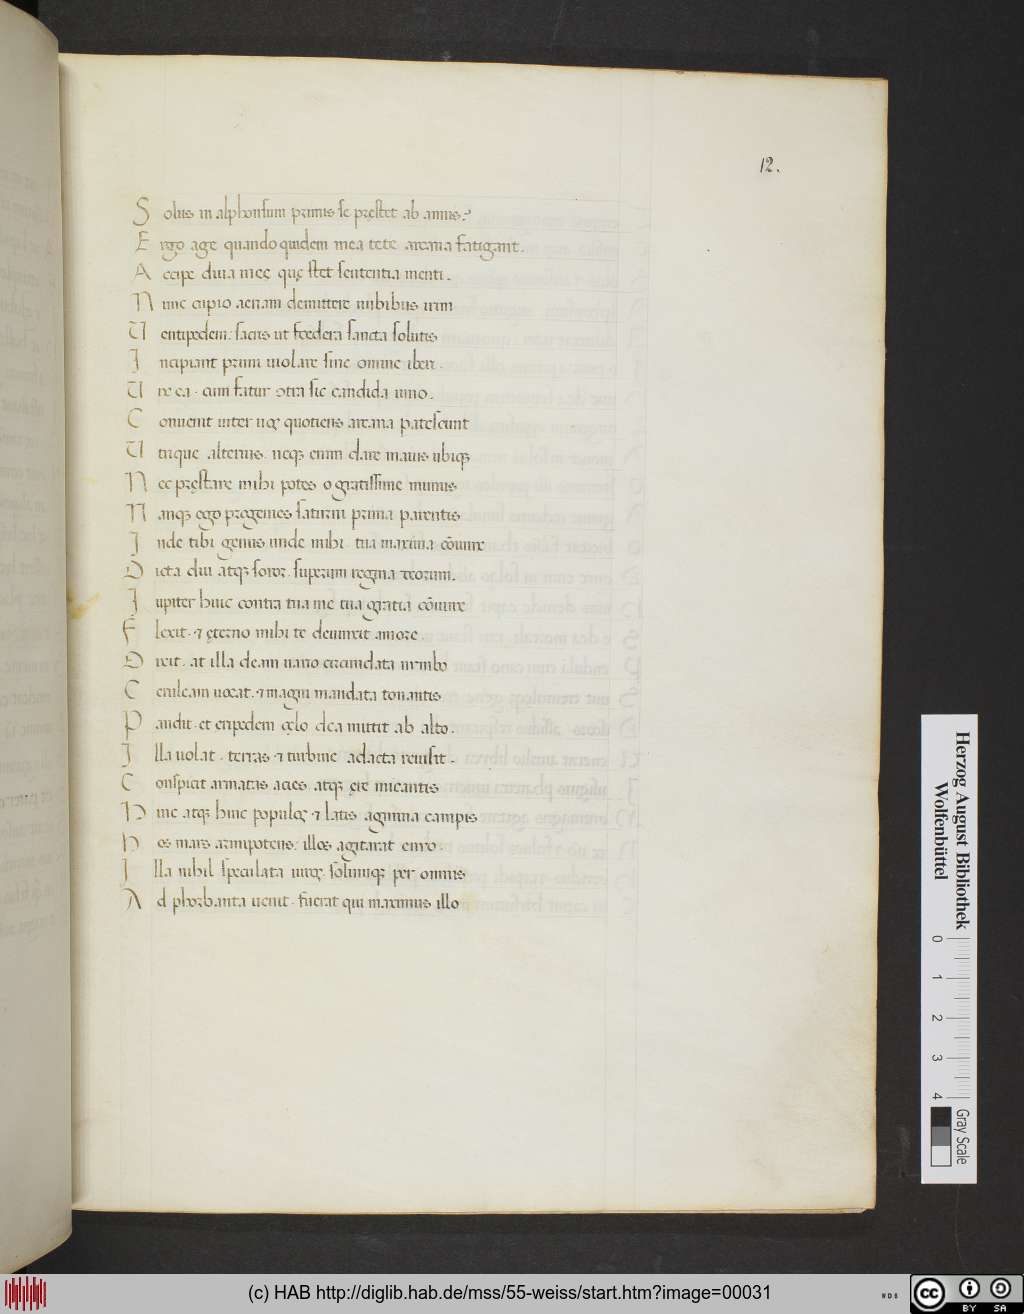 12.
Solus in alphonsum primis se prestet ab annis?
Ergo age quando quidem mea te te arcana fatigant.
Accipe diua meę quę stet sententia menti.
Nunc cupio aeriam demittere nubibus irim
Uentipedem: sacris ut foedera sancta solutis
Incipiant primi uiolare sine omine iberi.
Uire ea. cum fatur contra sic candida iuno.
Conuenit inter nos quotiens arcana patescunt
Utrique alterius. neqꝫ enim clare mauis ubiqꝫ
Nec pręstare mihi potes o gratissime munus
Nanqꝫ ego progenies saturni prima parentis
Inde tibi genus unde mihi. tua maxima cōiunx
Dicta diui atqꝫ soror. superum regina deorum.
Iupiter hinc contra tua me tua gratia cōiunx
Flexit. ⁊ ęterno mihi te deuinxit amore.
Dixit. at illa deam uario circundata nimbo
Ceruleam uocat. ⁊ magni mandata tonantis
Pandit. et eripedem cęlo dea mittit ab alto.
Illa uolat. terras ⁊ turbine adacta reuisit.
Conspicit armatas acies atqꝫ ęre micantis
Hinc atqꝫ hinc populos ⁊ latis agmina campis
Hos mars armipotens: illos agitarat enyo.
Illa nihil speculata uiros. solumqꝫ per omnis
Ad phorbanta uenit. fuerat qui maximus illo
Herzog August Bibliothek
Wolfenbüttel
0 1 2 3 4
Gray Scale
(c) HAB http://diglib.hab.de/mss/55-weiss/start.htm?image=00031
cc BY SA